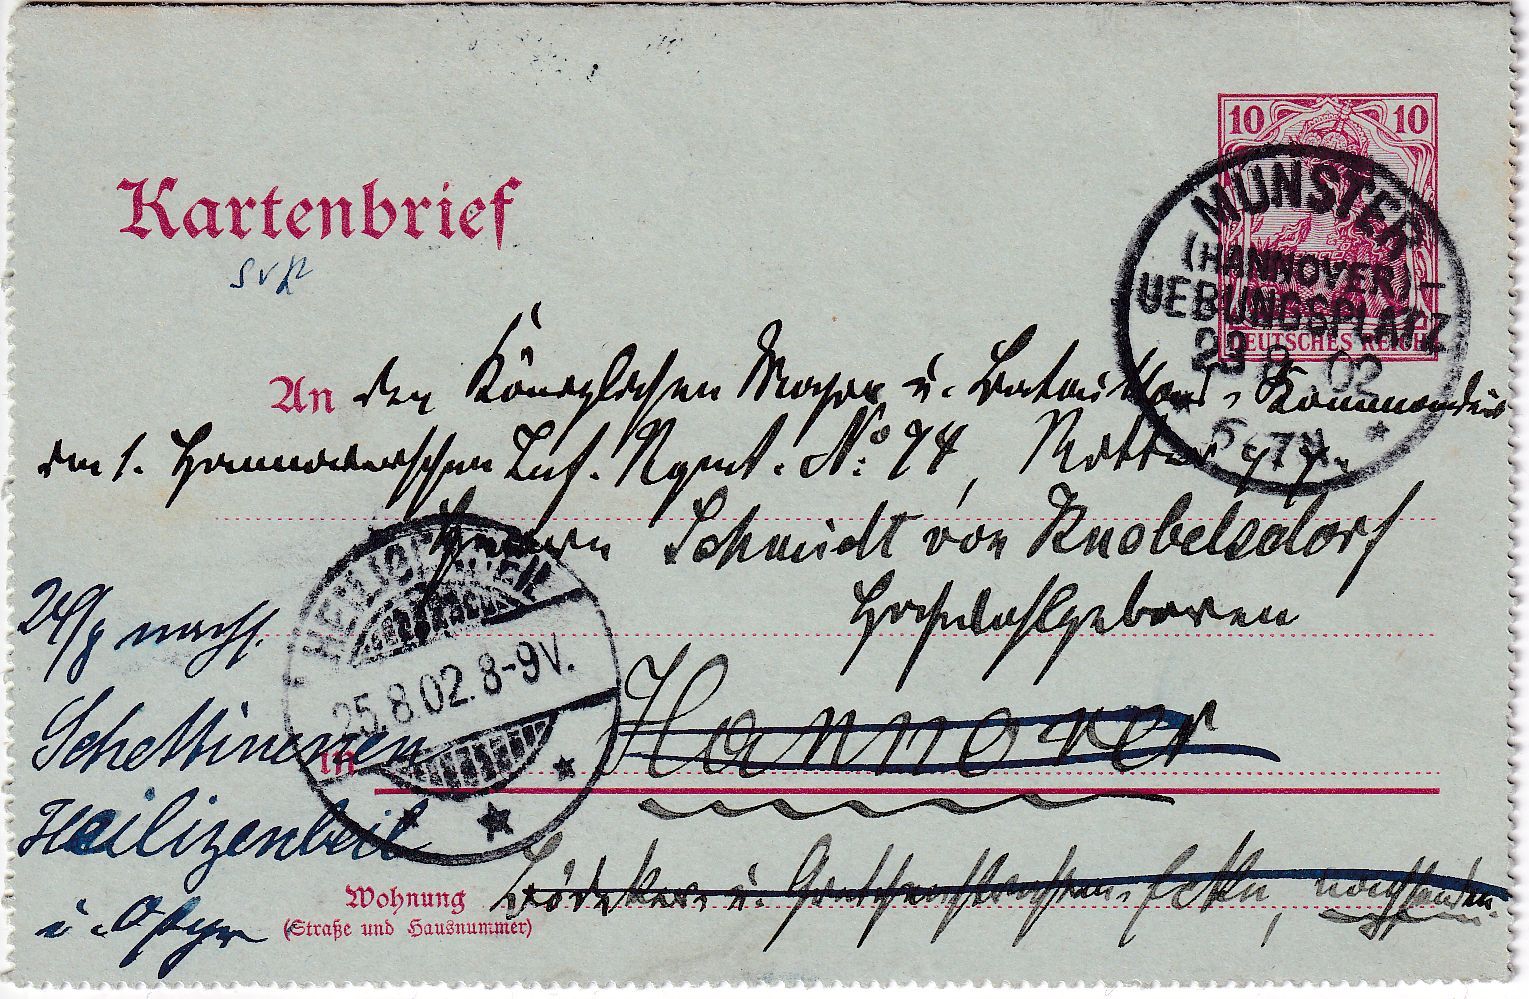 10 10
DEUTSCHES REICH
Kartenbrief
MÜNSTER
(HANNOVER)-
UEBUNGSPLATZ
23 8 02
5-6 7 N
An den Königlichen Major u. Bataillons-Kommandeur
im 1. Hannoverschen Inf. Rgmt. No: 74, Ritter
Herrn Schmidt von Knobelsdorf
Hochwohlgeboren
HEILIGENBEIL
25.8.02. 8-9V.
in Hannover
Wohnung Bödeker u. Ecke, nachsenden
(Straße und Hausnummer)
24/8 nach
Schettinenen
Heilizenbeil